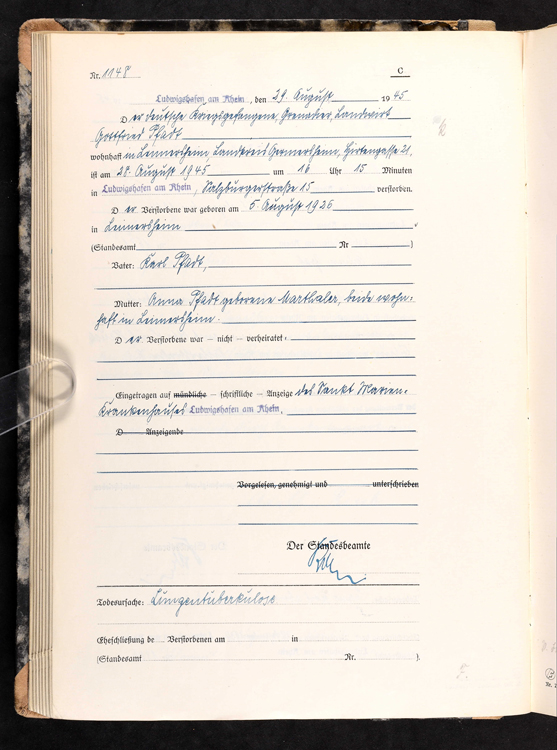 Nr. 1148
C
Ludwigshafen am Rhein, den 29. August 1945
Der deutsche Kriegsgefangene, Grenadier, Landwirt
Gottfried Pfadt
wohnhaft in Leimersheim, Landkreis Germersheim, Hirtengasse 21,
ist am 28. August 1945 um 16 Uhr 15 Minuten
in Ludwigshafen am Rhein, Salzburgerstraße 15 verstorben.
Der Verstorbene war geboren am 5. August 1926
in Leimersheim
(Standesamt Nr )
Vater: Karl Pfadt,
Mutter: Anna Pfadt geborene Marthaler, beide wohn-
haft in Leimersheim.
Der Verstorbene war – nicht – verheiratet
Eingetragen auf mündliche – schriftliche – Anzeige des Sankt Marien-
Krankenhauses Ludwigshafen am Rhein,
D Anzeigende
Vorgelesen, genehmigt und unterschrieben
Der Standesbeamte
Todesursache: Lungentuberkulose
Eheschließung de Verstorbenen am in
(Standesamt Nr. ).